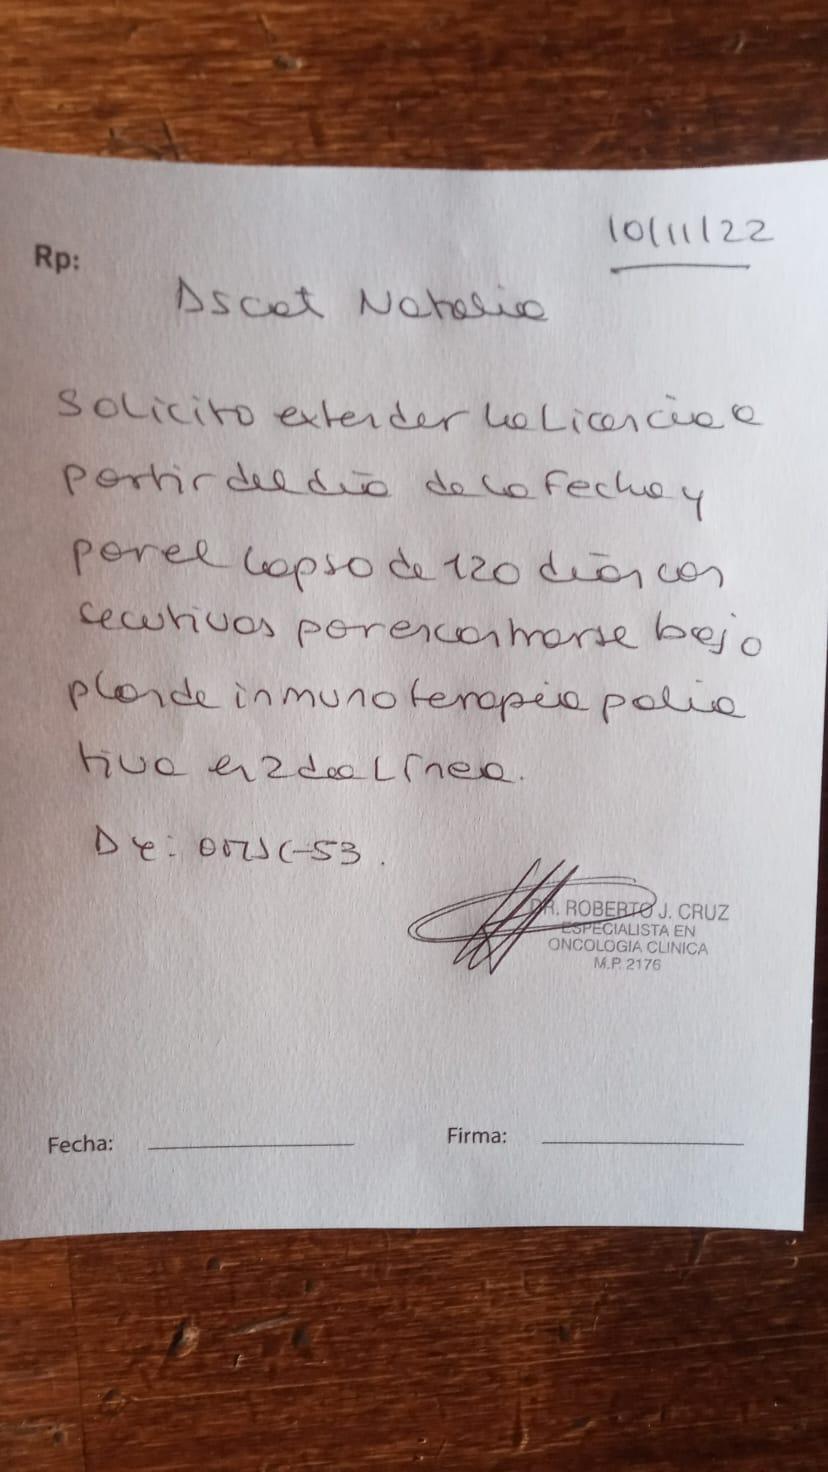 10/11/22
Rp:
Ascat Natalia
Solicito extender la Licencia a
partir del día de la fecha y
por el lapso de 120 días con
secutivos por encontrarse bajo
plan de inmunoterapia palia
tiva en 2da Línea.
-53.
DR. ROBERTO J. CRUZ
ESPECIALISTA EN
ONCOLOGIA CLINICA
M.P. 2176
Fecha:
Firma: